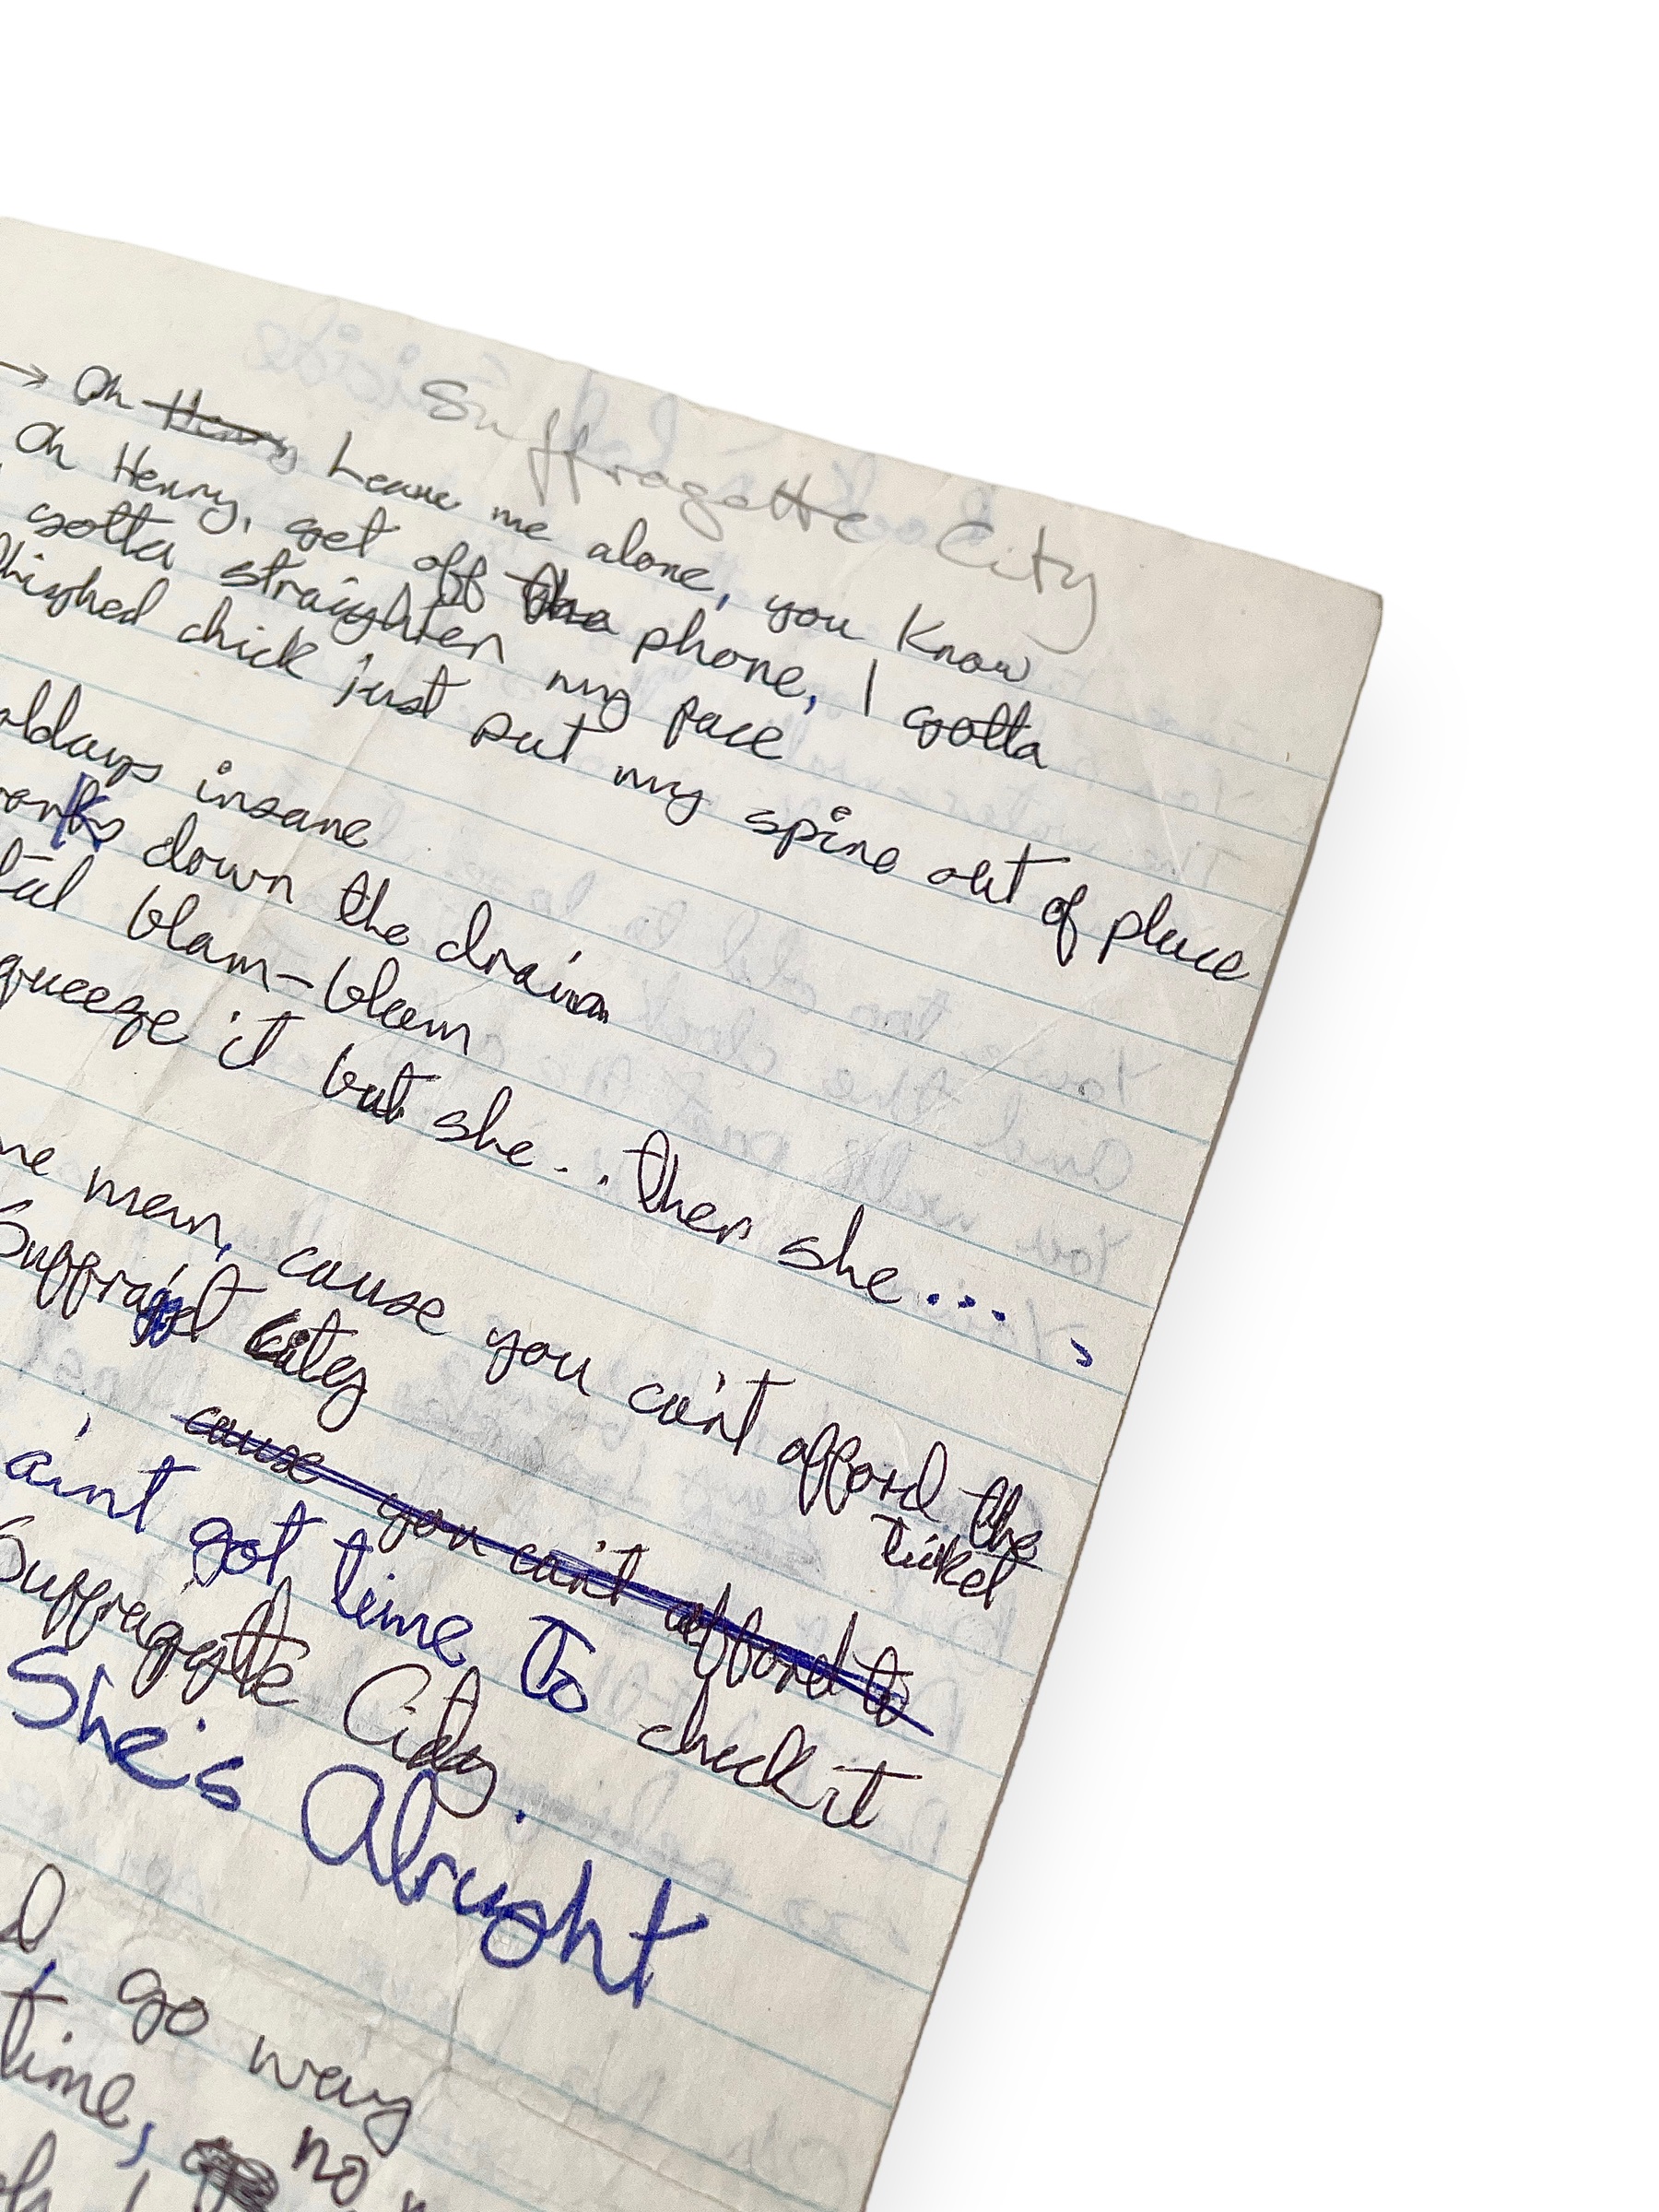 Suffragette City
→ Oh Henry, Leave me alone, you know
Oh Henry, get off the phone, I gotta
gotta straighten my face
thighed chick just put my spine out of place
insane
down the drain
blam-blam
queeze it but she... then she...
me man, cause you can't afford the
ticket
Suffraget City
cause you can't afford to
aint got time To check it
Suffragette City.
She's Alright
go way
time, no